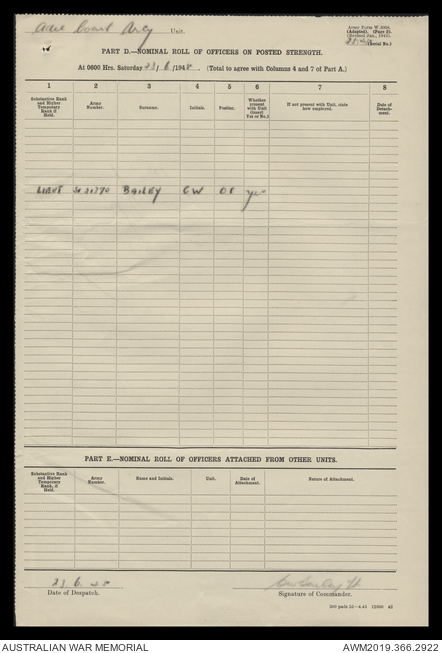 Coast Arty Unit.
Army Form W.3008.
(Adapted). (Part 2).
(Revised Jan., 1945).
(Serial No.)
PART D.—NOMINAL ROLL OF OFFICERS ON POSTED STRENGTH.
At 0600 Hrs. Saturday 23/6/194 . (Total to agree with Columns 4 and 7 of Part A.)
1 2 3 4 5 6 7 8
Substantive Rank and Higher Temporary Rank if Held. Army Number. Surname. Initials. Posting. Whether present with Unit (Insert Yes or No.) If not present with Unit, state how employed. Date of Detachment.
LIEUT BAILEY GW OC yes
PART E.—NOMINAL ROLL OF OFFICERS ATTACHED FROM OTHER UNITS.
Substantive Rank and Higher Temporary Rank, if Held. Army Number. Name and Initials. Unit. Date of Attachment. Nature of Attachment.
23. 6.
Date of Despatch. Signature of Commander.
AUSTRALIAN WAR MEMORIAL AWM2019.366.2922